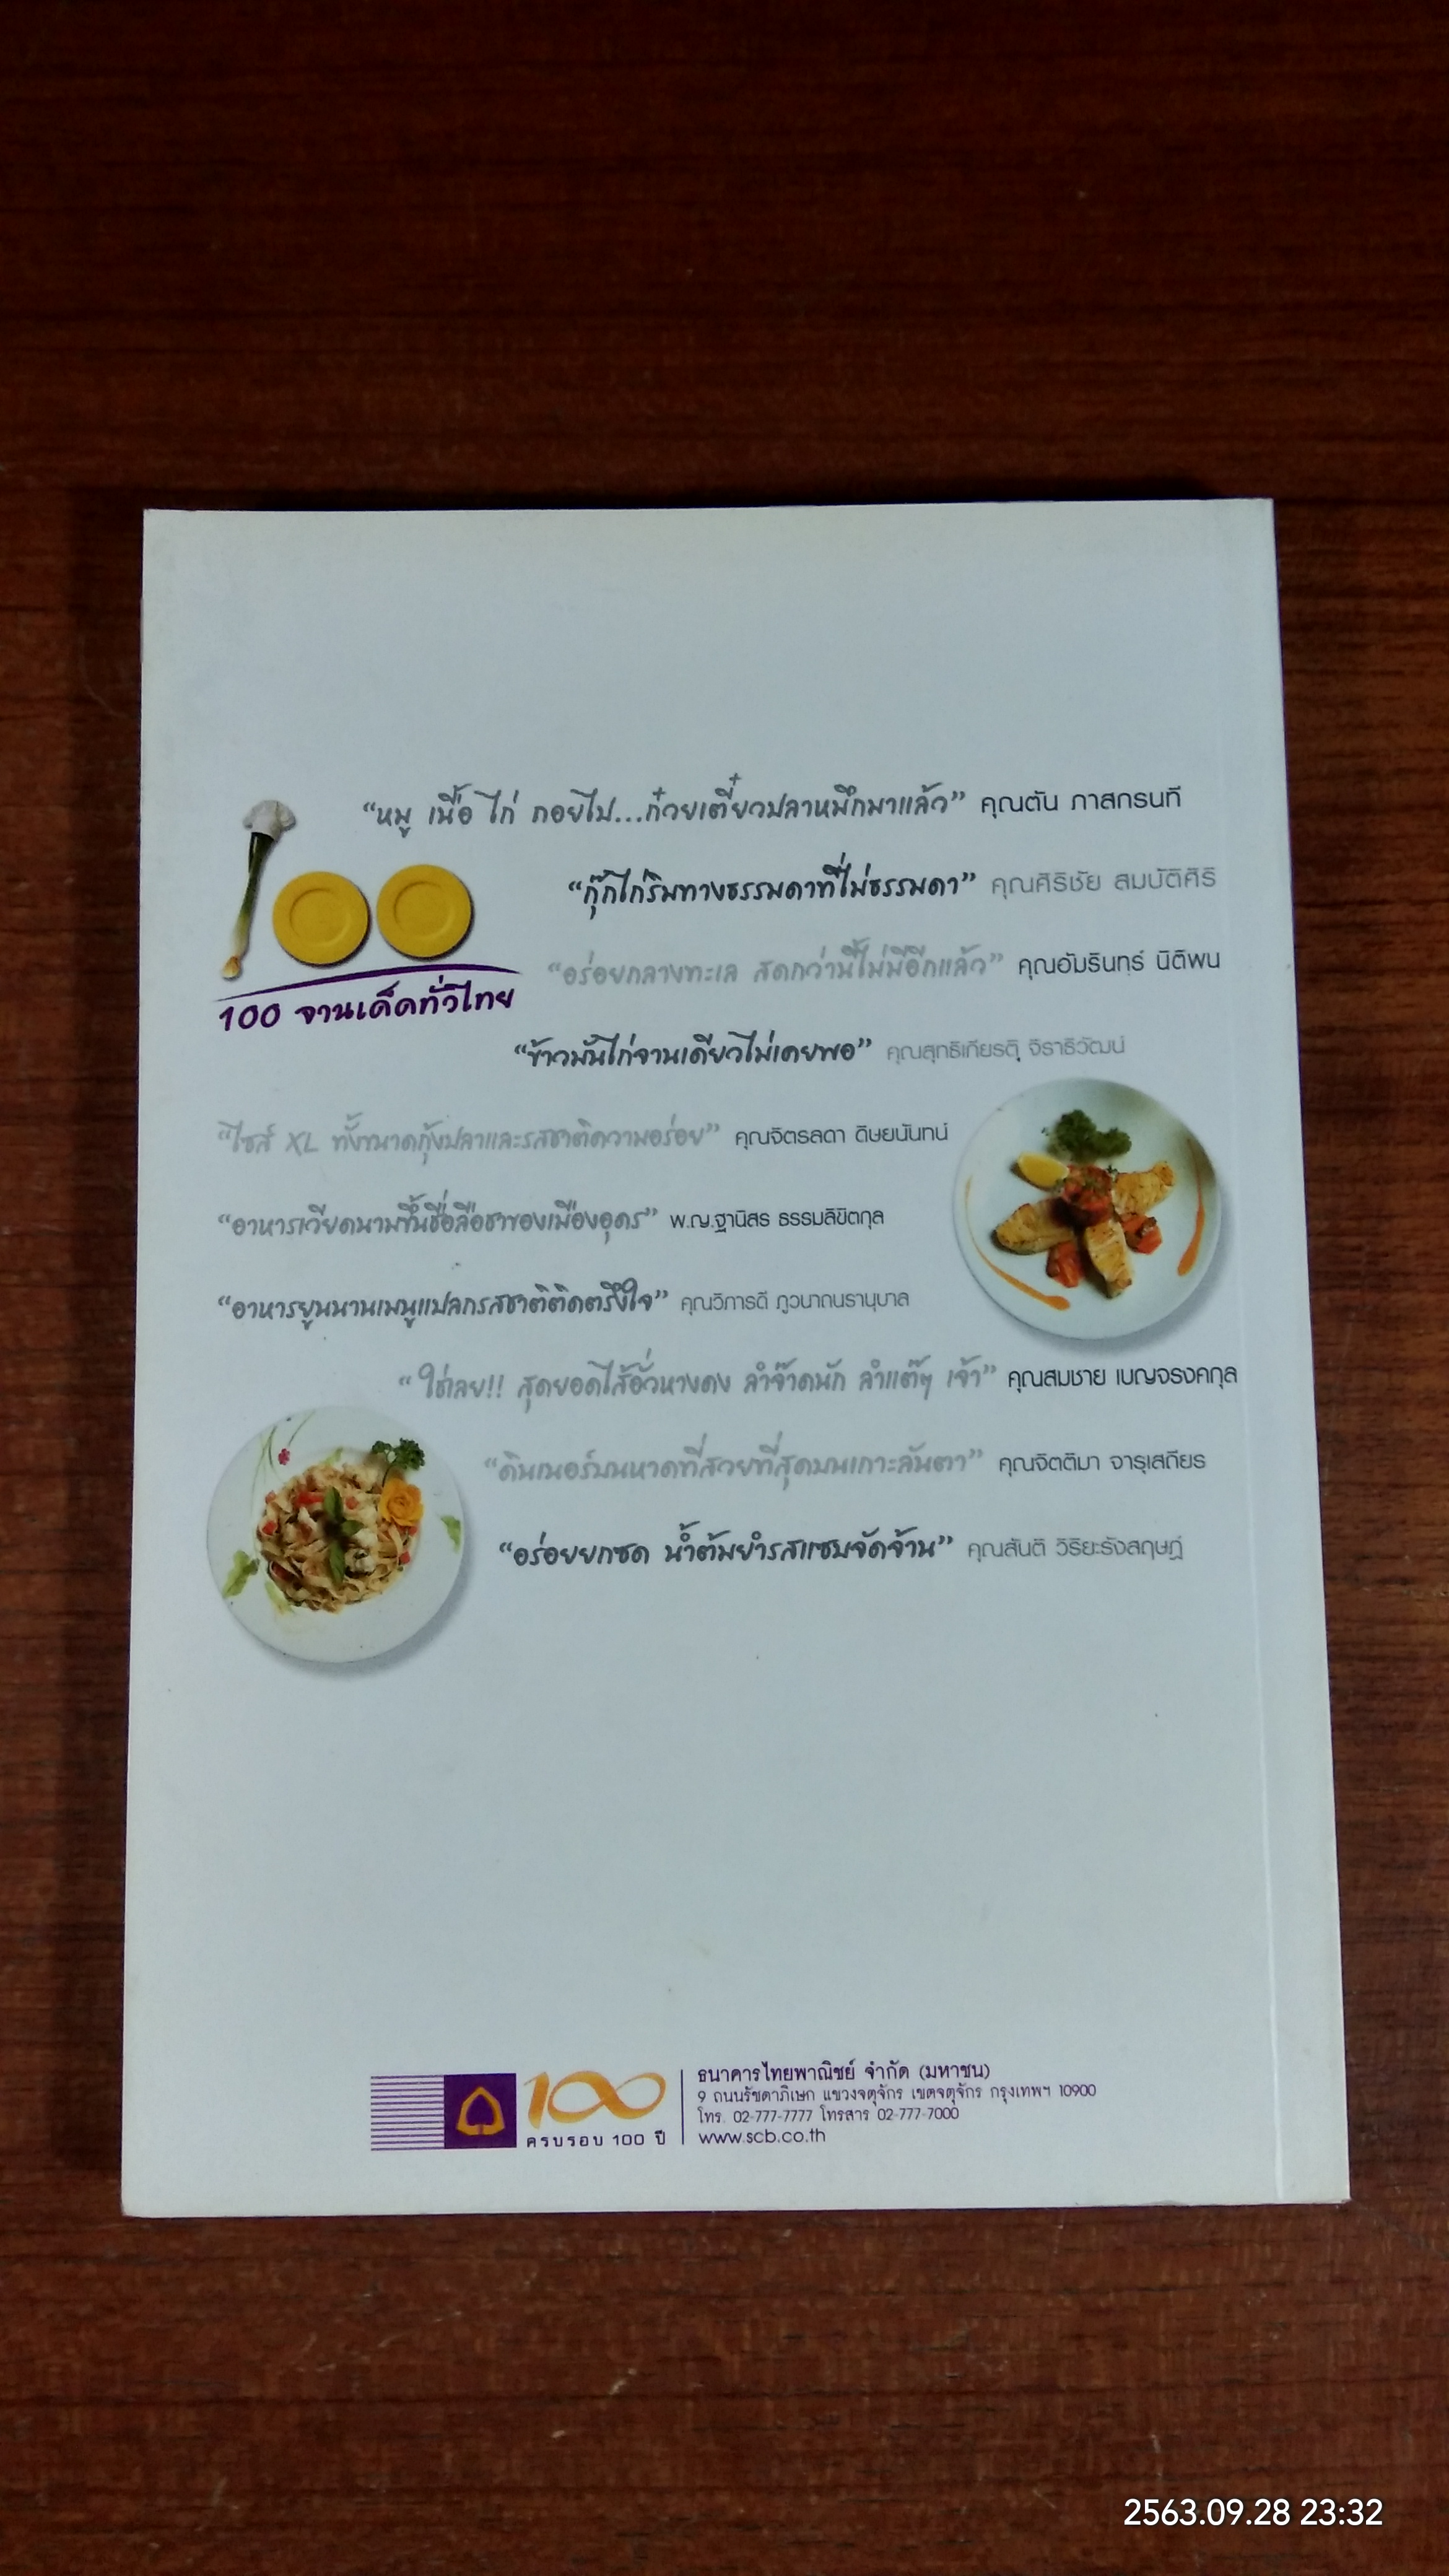 “หมู เนื้อ ไก่ ถอยไป...ก๋วยเตี๋ยวปลาหมึกมาแล้ว” คุณตัน ภาสกรนที
“กุ๊กไก่ริมทางธรรมดาที่ไม่ธรรมดา” คุณศิริชัย สมบัติศิริ
“อร่อยกลางทะเล สดกว่านี้ไม่มีอีกแล้ว” คุณอัมรินทร์ นิติพน
100 จานเด็ดทั่วไทย
“ข้าวมันไก่จานเดียวไม่เคยพอ” คุณสุทธิเกียรติ จิราธิวัฒน์
“ไซส์ XL ทั้งขนาดกุ้งปลาและรสชาติความอร่อย” คุณจิตรลดา ดิษยนันทน์
“อาหารเวียดนามขึ้นชื่อลือชาของเมืองอุดร” พ.ญ.ฐานิสร ธรรมลิขิตกุล
“อาหารยูนนานเมนูแปลกรสชาติติดตรึงใจ” คุณวิภารดี ภูวนาถนรานุบาล
“ใช่เลย!! สุดยอดไส้อั่วหางดง ลำจ๊าดนัก ลำแต๊ๆ เจ้า” คุณสมชาย เบญจรงคกุล
“ดินเนอร์บนหาดที่สวยที่สุดบนเกาะลันตา” คุณจิตติมา จารุเสถียร
“อร่อยยกซด น้ำต้มยำรสแซบจัดจ้าน” คุณสันติ วิริยะรังสฤษฎ์
100
ครบรอบ 100 ปี
ธนาคารไทยพาณิชย์ จำกัด (มหาชน)
9 ถนนรัชดาภิเษก แขวงจตุจักร เขตจตุจักร กรุงเทพฯ 10900
โทร. 02-777-7777 โทรสาร 02-777-7000
www.scb.co.th
2563.09.28 23:32